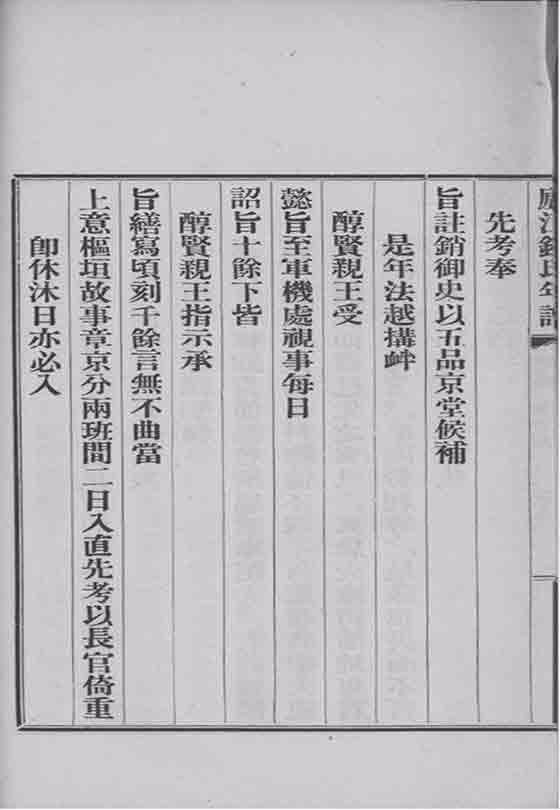 廬江錢氏年譜
先考奉
旨註銷御史以五品京堂候補
是年法越搆衅
醇賢親王受
懿旨至軍機處視事每日
詔旨十餘下皆
醇賢親王指示承
旨繕寫頃刻千餘言無不曲當
上意樞垣故事章京分兩班間二日入直先考以長官倚重
卽休沐日亦必入